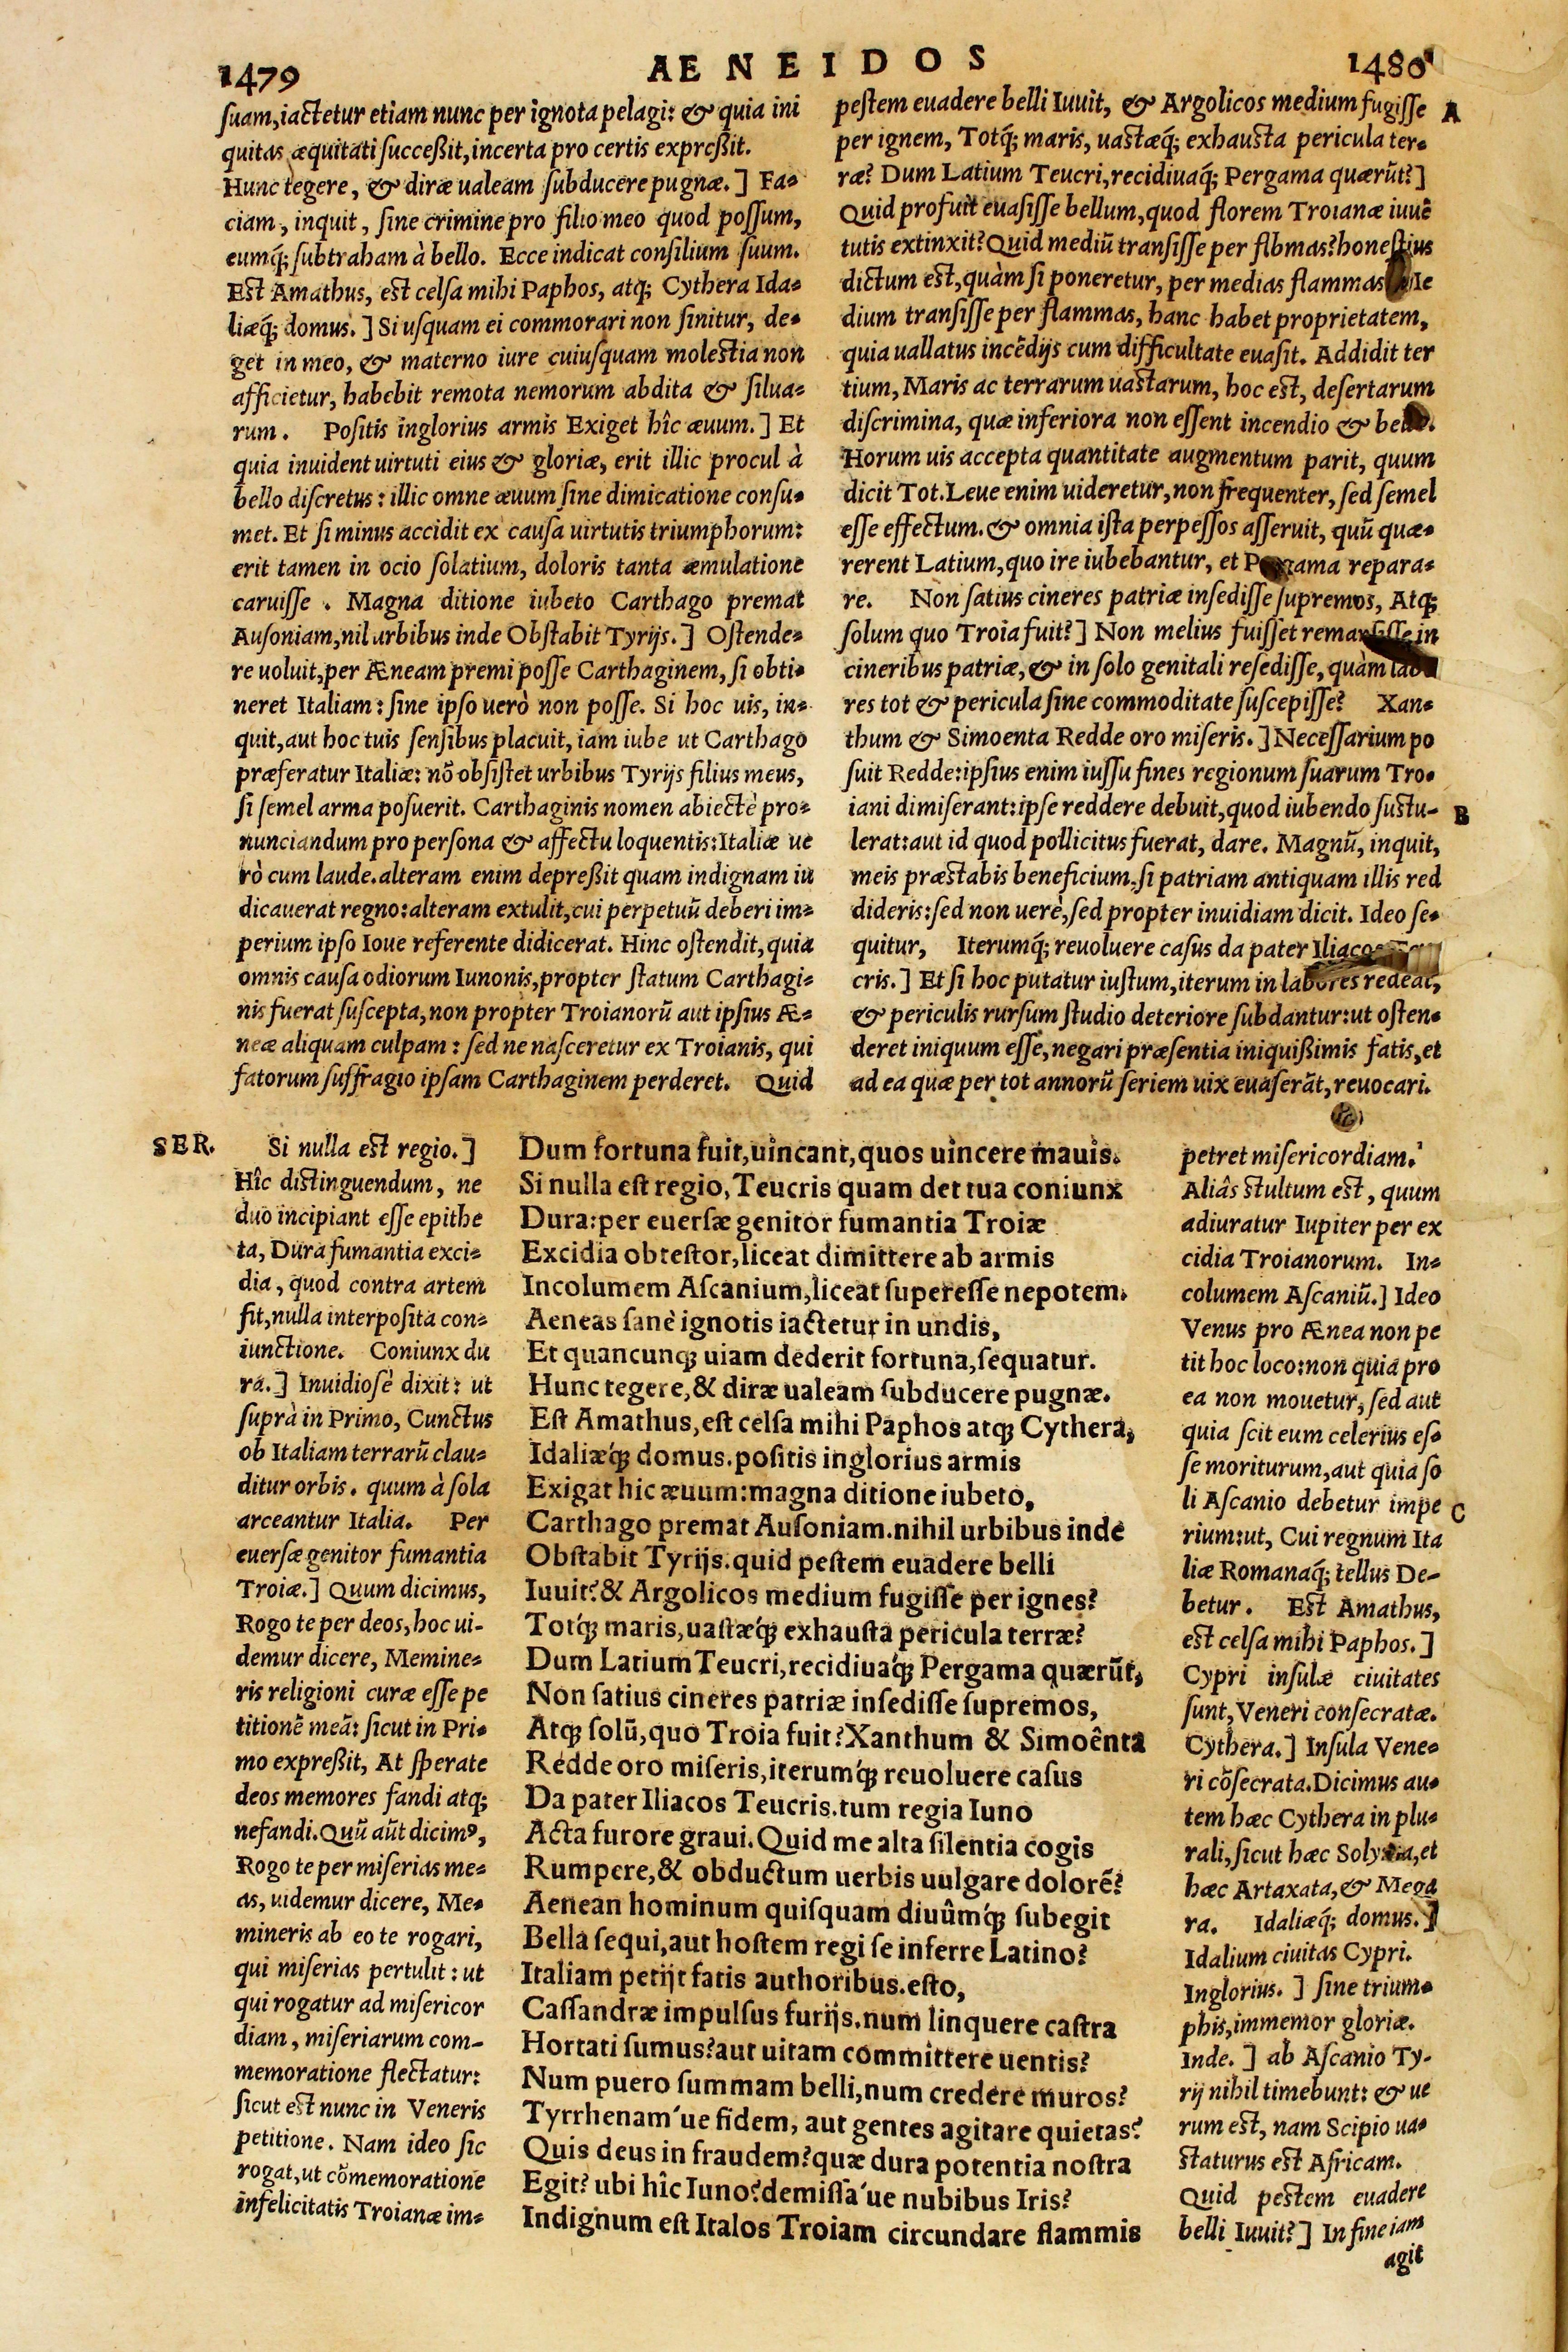 1479
AENEIDOS
1480
suam, iactetur etiam nunc per ignota pelagi: & quia ini
quitas æquitati successit, incerta pro certis expressit.
Hunc tegere, & diræ ualeam subducere pugnæ.] Fa-
ciam, inquit, sine crimine pro filio meo quod possum,
eumq́; subtraham à bello. Ecce indicat consilium suum.
Est Amathus, est celsa mihi Paphos, atq; Cythera Ida-
liæq́; domus.] Si usquam ei commorari non sinitur, de-
get in meo, & materno iure cuiusquam molestia non
afficietur, habebit remota nemorum abdita & silua-
rum. Positis inglorius armis Exiget hîc æuum.] Et
quia inuident uirtuti eius & gloriæ, erit illic procul à
bello discretus: illic omne æuum sine dimicatione consu-
met. Et si minus accidit ex causa uirtutis triumphorum:
erit tamen in ocio solatium, doloris tanta æmulatione
caruisse. Magna ditione iubeto Carthago premat
Ausoniam, nil urbibus inde Obstabit Tyrijs.] Ostende-
re uoluit, per Æneam premi posse Carthaginem, si obti-
neret Italiam: sine ipso uerò non posse. Si hoc uis, in-
quit, aut hoc tuis sensibus placuit, iam iube ut Carthago
præferatur Italiæ: nõ obsistet urbibus Tyrijs filius meus,
si semel arma posuerit. Carthaginis nomen abiectè pro-
nunciandum pro persona & affectu loquentis: Italiæ ue
rò cum laude. alteram enim depressit quam indignam iu
dicauerat regno: alteram extulit, cui perpetuũ deberi im-
perium ipso Ioue referente didicerat. Hinc ostendit, quia
omnis causa odiorum Iunonis, propter statum Carthagi-
nis fuerat suscepta, non propter Troianorũ aut ipsius Æ-
neæ aliquam culpam: sed ne nasceretur ex Troianis, qui
fatorum suffragio ipsam Carthaginem perderet. Quid
pestem euadere belli Iuuit, & Argolicos medium fugisse
A
per ignem, Totq́; maris, uastæq́; exhausta pericula ter-
ræ? Dum Latium Teucri, recidiuaq́; Pergama quærũt?]
Quid profuit euasisse bellum, quod florem Troianæ iuuẽ
tutis extinxit? Quid mediũ transisse per flbmas? honestius
dictum est, quàm si poneretur, per medias flammas Ie
dium transisse per flammas, hanc habet proprietatem,
quia uallatus incẽdijs cum difficultate euasit. Addidit ter
tium, Maris ac terrarum uastarum, hoc est, desertarum
discrimina, quæ inferiora non essent incendio & bello.
Horum uis accepta quantitate augmentum parit, quum
dicit Tot. Leue enim uideretur, non frequenter, sed semel
esse effectum. & omnia ista perpessos asseruit, quũ quæ-
rerent Latium, quo ire iubebantur, et Pergama repara-
re. Non satius cineres patriæ insedisse supremos, Atq;
solum quo Troia fuit?] Non melius fuisset remansisse in
cineribus patriæ, & in solo genitali resedisse, quàm labo
res tot & pericula sine commoditate suscepisse? Xan-
thum & Simoenta Redde oro miseris.] Necessarium po
suit Redde: ipsius enim iussu fines regionum suarum Tro-
iani dimiserant: ipse reddere debuit, quod iubendo sustu-
B
lerat: aut id quod pollicitus fuerat, dare. Magnũ, inquit,
meis præstabis beneficium, si patriam antiquam illis red
dideris: sed non uerè, sed propter inuidiam dicit. Ideo se-
quitur, Iterumq́; reuoluere casus da pater Iliacos Teu
cris.] Et si hoc putatur iustum, iterum in labores redeat,
& periculis rursum studio deteriore subdantur: ut osten-
deret iniquum esse, negari præsentia iniquissimis fatis, et
ad ea quæ per tot annorũ seriem uix euaserãt, reuocari.
SER.
Si nulla est regio.]
Hîc distinguendum, ne
duo incipiant esse epithe
ta, Dura fumantia exci-
dia, quod contra artem
fit, nulla interposita con-
iunctione. Coniunx du
ra.] Inuidiosè dixit: ut
suprà in Primo, Cunctus
ob Italiam terrarũ clau-
ditur orbis. quum à sola
arceantur Italia. Per
euersæ genitor fumantia
Troiæ.] Quum dicimus,
Rogo te per deos, hoc ui-
demur dicere, Memine-
ris religioni curæ esse pe
titionẽ meã: sicut in Pri-
mo expressit, At sperate
deos memores fandi atq;
nefandi. Quũ aũt dicimꝰ,
Rogo te per miserias me-
as, uidemur dicere, Me-
mineris ab eo te rogari,
qui miserias pertulit: ut
qui rogatur ad misericor
diam, miseriarum com-
memoratione flectatur:
sicut est nunc in Veneris
petitione. Nam ideo sic
rogat, ut cõmemoratione
infelicitatis Troianæ im-
Dum fortuna fuit, uincant, quos uincere mauis.
Si nulla est regio, Teucris quam det tua coniunx
Dura: per euersæ genitor fumantia Troiæ
Excidia obtestor, liceat dimittere ab armis
Incolumem Ascanium, liceat superesse nepotem.
Aeneas sanè ignotis iactetur in undis,
Et quancunq; uiam dederit fortuna, sequatur.
Hunc tegere, & diræ ualeam subducere pugnæ.
Est Amathus, est celsa mihi Paphos atq; Cythera,
Idaliæq́; domus. positis inglorius armis
Exigat hic æuum: magna ditione iubeto,
Carthago premat Ausoniam. nihil urbibus inde
Obstabit Tyrijs. quid pestem euadere belli
Iuuit? & Argolicos medium fugisse per ignes?
Totq́; maris, uastæq́; exhausta pericula terræ?
Dum Latium Teucri, recidiuaq́; Pergama quærũt,
Non satius cineres patriæ insedisse supremos,
Atq; solũ, quo Troia fuit? Xanthum & Simoênta
Redde oro miseris, iterumq́; reuoluere casus
Da pater Iliacos Teucris. tum regia Iuno
Acta furore graui. Quid me alta silentia cogis
Rumpere, & obductum uerbis uulgare dolorẽ?
Aenean hominum quisquam diuûmq́; subegit
Bella sequi, aut hostem regi se inferre Latino?
Italiam petijt fatis authoribus. esto,
Cassandræ impulsus furijs. num linquere castra
Hortati sumus? aut uitam committere uentis?
Num puero summam belli, num credere muros?
Tyrrhenam'ue fidem, aut gentes agitare quietas?
Quis deus in fraudem? quæ dura potentia nostra
Egit? ubi hîc Iuno? demissa'ue nubibus Iris?
Indignum est Italos Troiam circundare flammis
petret misericordiam.
Aliâs stultum est, quum
adiuratur Iupiter per ex
cidia Troianorum. In-
columem Ascaniũ.] Ideo
Venus pro Ænea non pe
tit hoc loco: non quia pro
ea non mouetur, sed aut
quia scit eum celerius es-
se moriturum, aut quia so
li Ascanio debetur impe
C
rium: ut, Cui regnum Ita
liæ Romanaq́; tellus De-
betur. Est Amathus,
est celsa mihi Paphos.]
Cypri insulæ ciuitates
sunt, Veneri consecratæ.
Cythera.] Insula Vene-
ri cõsecrata. Dicimus au-
tem hæc Cythera in plu-
rali, sicut hæc Solyma, et
hæc Artaxata, & Mega
ra. Idaliæq́; domus.]
Idalium ciuitas Cypri.
Inglorius.] sine trium-
phis, immemor gloriæ.
Inde.] ab Ascanio Ty-
rij nihil timebunt: & ue
rum est, nam Scipio ua-
staturus est Africam.
Quid pestem euadere
belli Iuuit?] In fine iam
agit